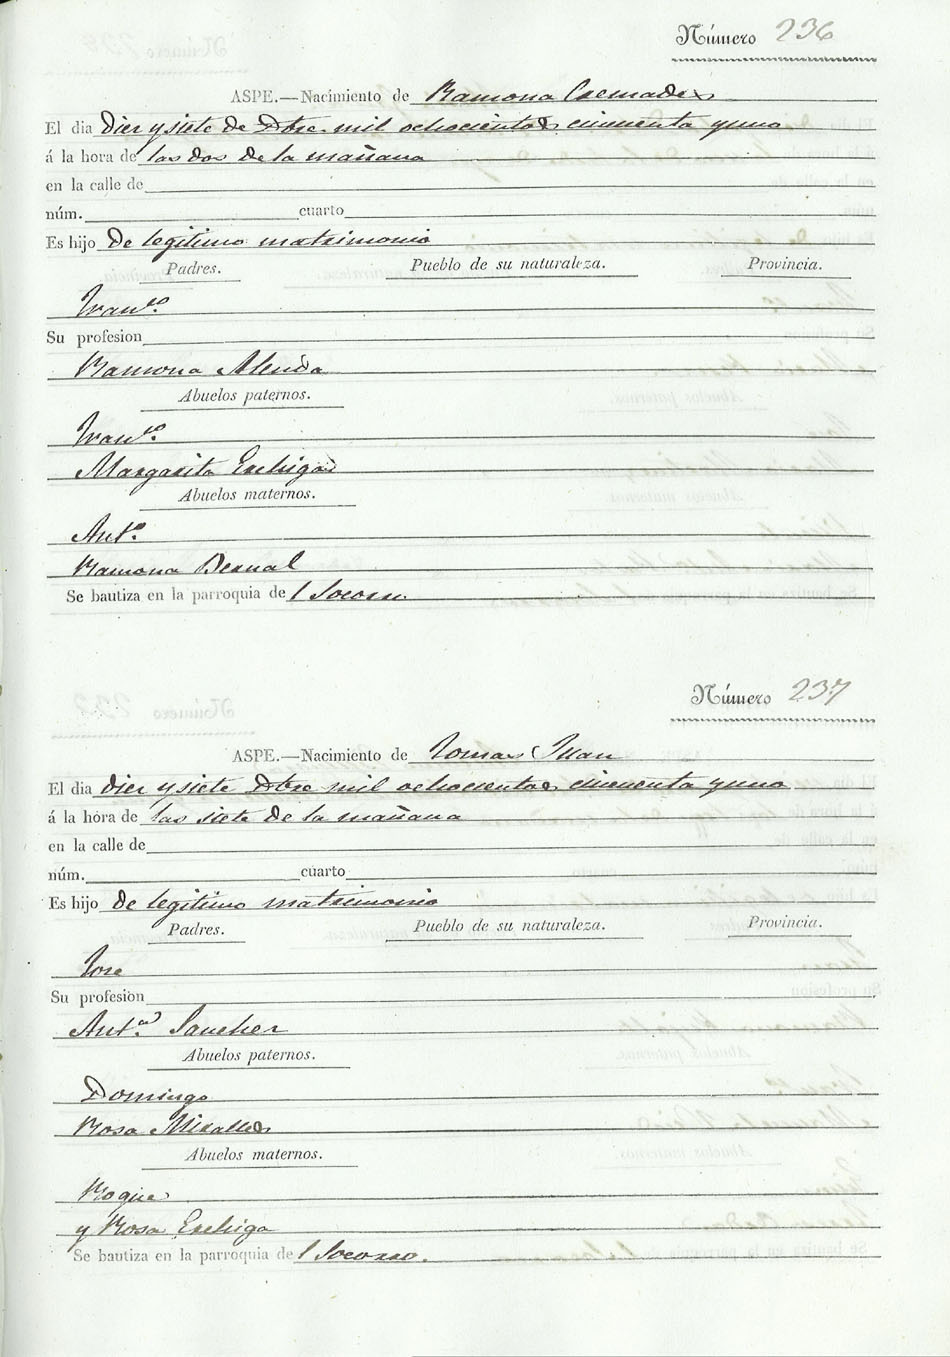 Número 236
ASPE.—Nacimiento de Ramona Cremades
El dia diez y siete de Dbre mil ochocientos cincuenta y uno
á la hora de las dos de la mañana
en la calle de
núm. cuarto
Es hijo de legitimo matrimonio
Padres. Pueblo de su naturaleza. Provincia.
Franco.
Su profesion
Ramona Alenda
Abuelos paternos.
Franco.
Margarita Erehiga
Abuelos maternos.
Anto.
Ramona Bernal
Se bautiza en la parroquia del Socorro
Número 237
ASPE.—Nacimiento de Tomas Juan
El dia diez y siete Dbre mil ochocientos cincuenta y uno
á la hora de las siete de la mañana
en la calle de
núm. cuarto
Es hijo de legitimo matrimonio
Padres. Pueblo de su naturaleza. Provincia.
Jose
Su profesion
Anta. Sanchez
Abuelos paternos.
Domingo
Rosa Miralles
Abuelos maternos.
Roque
y Rosa Erehiga
Se bautiza en la parroquia del Socorro.